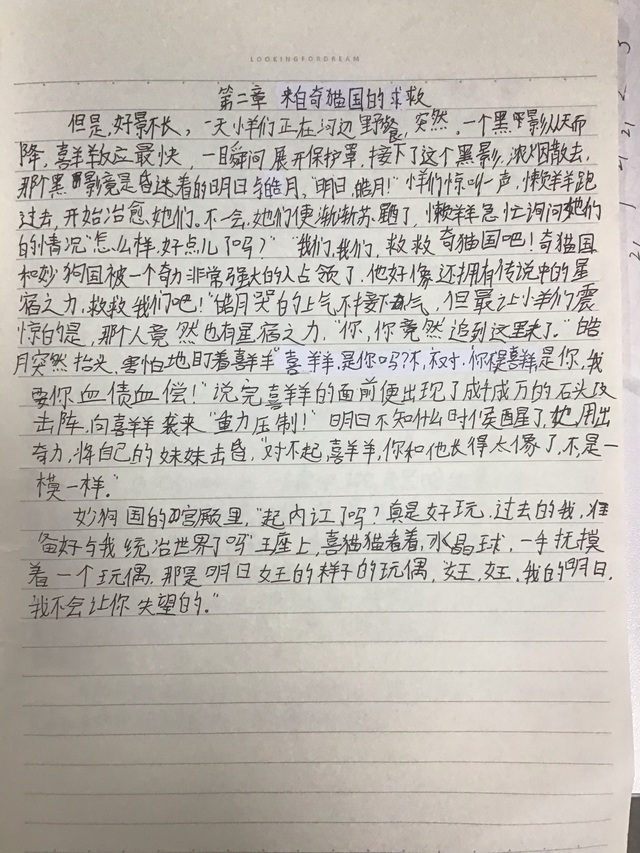 LOOKINGFORDREAM
第二章 来自奇猫国的求救
但是,好景不长,一天小羊们正在河边野餐,突然,一个黑影从天而
降,喜羊羊反应最快,一瞬间展开保护罩,接下了这个黑影,浓烟散去,
那个黑影竟是昏迷着的明日与皓月,"明日,皓月!"小羊们惊叫一声,懒羊羊跑
过去,开始治愈她们。不一会,她们便渐渐苏醒了,懒羊羊急忙询问她们
的情况"怎么样,好点儿了吗?""我们,我们,救救奇猫国吧!奇猫国
和妙狗国被一个奇力非常强大的人占领了,他好像还拥有传说中的星
宿之力,救救我们吧!"皓月哭的上气不接下气,但最让小羊们震
惊的是,那个人竟然也有星宿之力,"你,你竟然追到这里来了。"皓
月突然抬头,害怕地盯着喜羊羊"喜羊羊,是你吗?不,不对,你不是喜羊羊是你,我
要你血债血偿!"说完喜羊羊的面前便出现了成千成万的石头攻
击阵,向喜羊羊袭来"重力压制!"明日不知什么时候醒了,她用出
奇力,将自己的妹妹击昏,"对不起,喜羊羊,你和他长得太像了,不,是一
模一样。"
妙狗国的宫殿里,"起内讧了吗?真是好玩,过去的我,准
备好与我统治世界了吗"王座上,喜猫猫看着,水晶球,一手抚摸
着一个玩偶,那是明日女王的样子的玩偶,女王,女王,我的明日,
我不会让你失望的。"
21